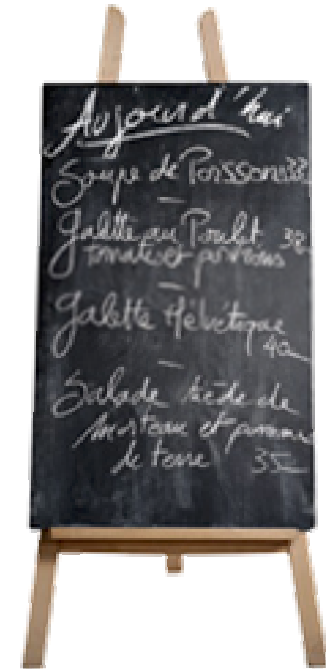 Aujourd'hui
Soupe de Poissons 32
Galette au Poulet 38
tomate et poivrons
Galette Helvétique
40
Salade tiède de
morteau et pomme
de terre 35